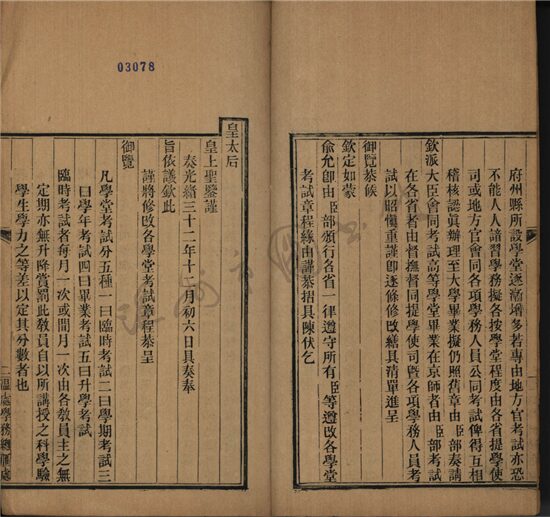 府州縣所設學堂逐漸增多若專由地方官考試亦恐
不能人人諳習學務擬各按學堂程度由各省提學使
司或地方官會同各項學務人員公同考試俾得互相
稽核認眞辦理至大學畢業擬仍照舊章由臣部奏請
欽派大臣會同考試高等學堂畢業在京師者由臣部考試
在各省者由督撫同提學使司暨各項學務人員考
試以昭愼重謹卽逐條修改繕具清單進呈
御覽恭候
欽定如蒙
俞允卽由臣部頒行各省一律遵守所有臣等遵改各學堂
考試章程緣由謹恭摺具陳伏乞
03078
皇太后
皇上聖鑒謹
奏光緒三十二年十二月初六日具奏奉
旨依議欽此
謹將修改各學堂考試章程恭呈
御覽
凡學堂考試分五種一曰臨時考試二曰學期考試三
曰學年考試四曰畢業考試五曰升學考試
臨時考試每月一次或間月一次由各敎員主之無
定期亦無升降賞罰此敎員自以所講授之科學驗
學生學力之等差以定其分數者也
二溫處學務總匯處